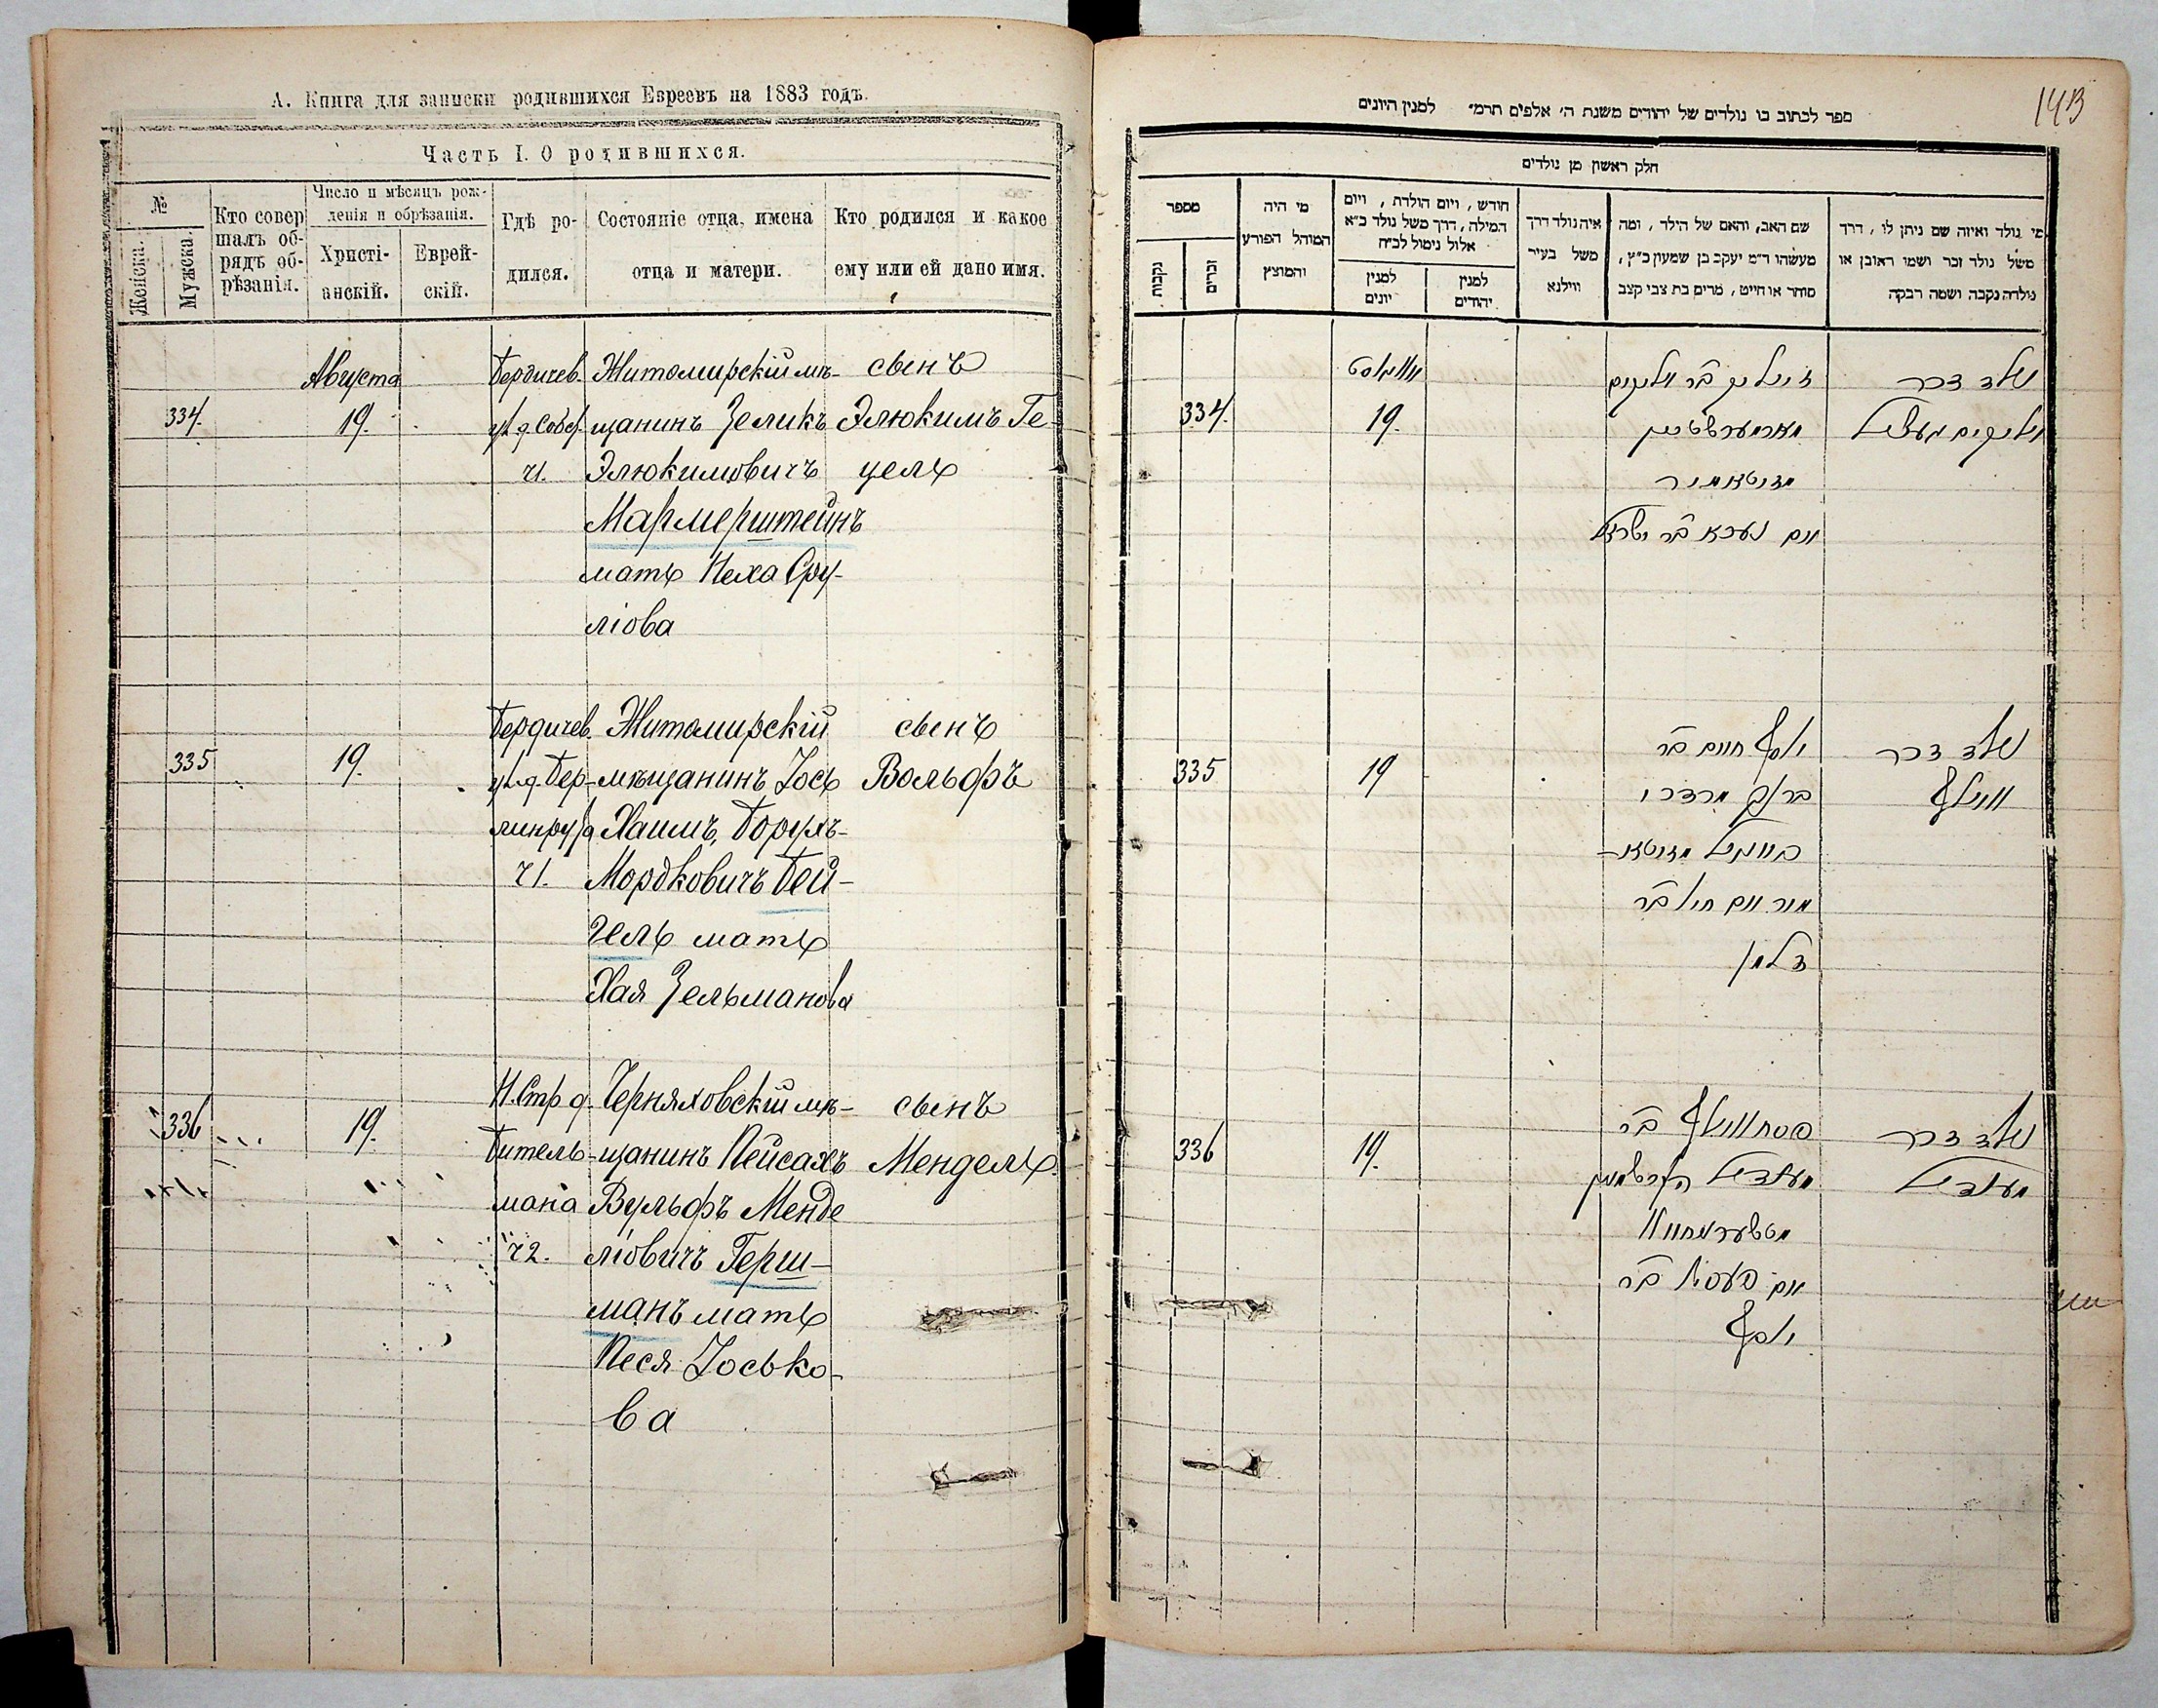 А. Книга для записки родившихся Евреевъ на 1883 годъ.
Часть I. О родившихся.
№
Женска.
Мужска.
Кто совер
шалъ об-
рядъ об-
рѣзанія.
Число и мѣсяцъ рож-
денія и обрѣзанія.
Христі-
анскій.
Еврей-
скій.
Гдѣ ро-
дился.
Состояніе отца, имена
отца и матери.
Кто родился и какое
ему или ей дано имя.
Августа
334.
19.
Бердичев.
ул. д. Собст.
ч1.
Житомирскій мѣ-
щанинъ Зеликъ
Элюкимовичъ
Мармерштейнъ
мать Неха Сру-
ліова
сынъ
Элюкимъ Ге-
цель
335
19.
Бердичев.
ул. д. Бер-
ч1.
Житомирскій
мѣщанинъ Іось
Хаимъ, Борухъ-
Мордковичъ Бей-
гель мать
Хая Зельманова
сынъ
Вольфъ
336
19.
Н.Стр д.
Битель-
мана
ч2.
Черняховскій мѣ-
щанинъ Пейсахъ
Вульфъ Менде
ліовичъ Герш-
манъ мать
Песя Іосько-
ва
сынъ
Мендель.
ספר לכתוב בו נולדים של יהודים משנת ה׳ אלפים תרמ״ למנין היונים
חלק ראשון מן נולדים
מספר
נקבות
זכרים
מי היה
המוהל הפורע
והמוצץ
חודש, ויום הולדת, ויום
המילה, דרך משל נולד כ״א
אלול נימול לכ״ח
למנין
יונים
למנין
יהודים
איה נולד דרך
משל בעיר
ווילנא
שם האב, והאם של הילד, ומה
מעשהו ד״מ יעקב בן שמעון כ״ץ,
סוחר או חייט, מרים בת צבי קצב
מי נולד ואיזה שם ניתן לו, דרך
משל נולד זכר ושמו ראובן או
נולדה נקבה ושמה רבקה
334.
19.
נולד זכר
335
19
יוסף חיים בר
ברוך מרדכי
בייגיל
נולד זכר
וואלף
336
19.
פסח וואלף בר
מענדיל הערשמאן
יוסף
נולד זכר
מענדיל